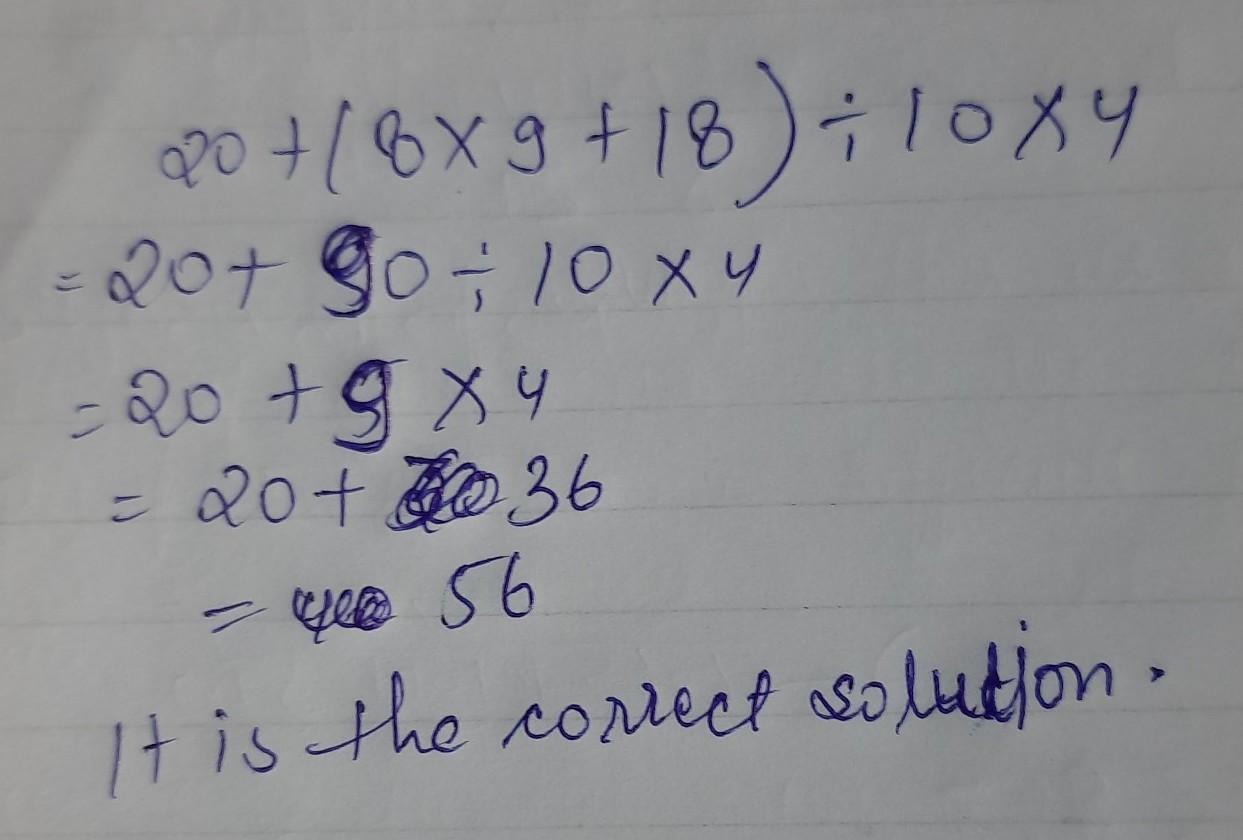 20+(8×9+18)÷10×4
=20+90÷10×4
=20+9×4
=20+36
=56
It is the correct solution.